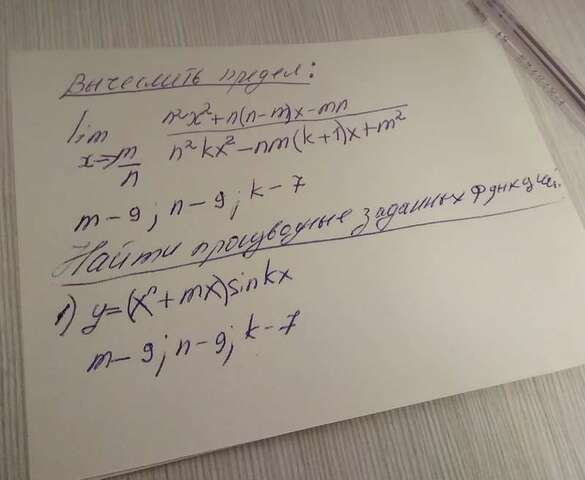 Вычеслить предел:
lim n²x²+n(n-m)x-mn
x→m/n n²kx²-nm(k+1)x+m²
m-9; n-9; k-7
Найти производные заданных функций.
1) y=(xⁿ+mx)sinkx
m-9; n-9; k-7